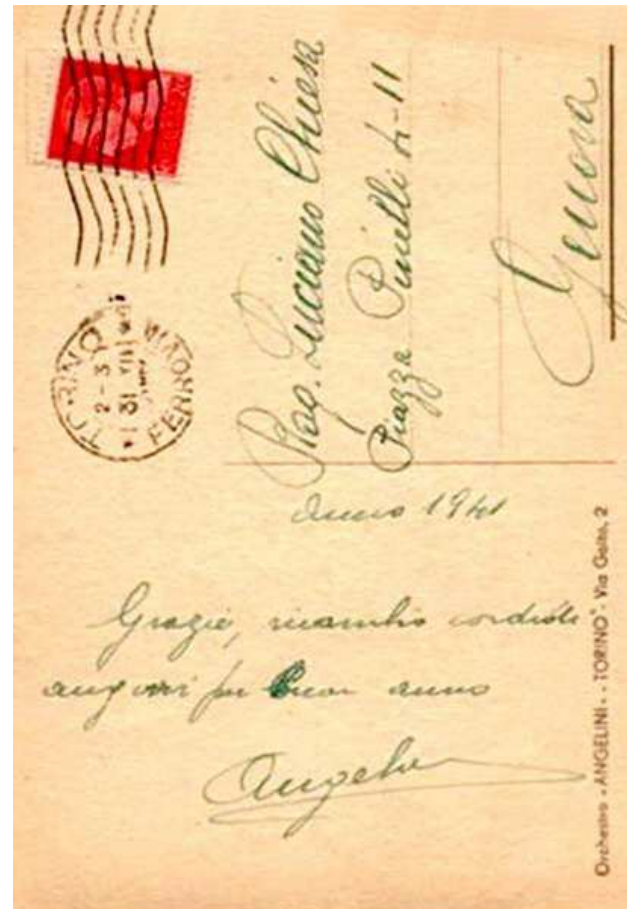 TORINO
FERROVIA
Rag. Luciano Chiesa
Piazza Pinelli 4-11
Genova
Anno 1941
Grazie, ricambio cordiali
auguri per buon anno
Angelini
Orchestra « ANGELINI » - TORINO - Via Goito, 2